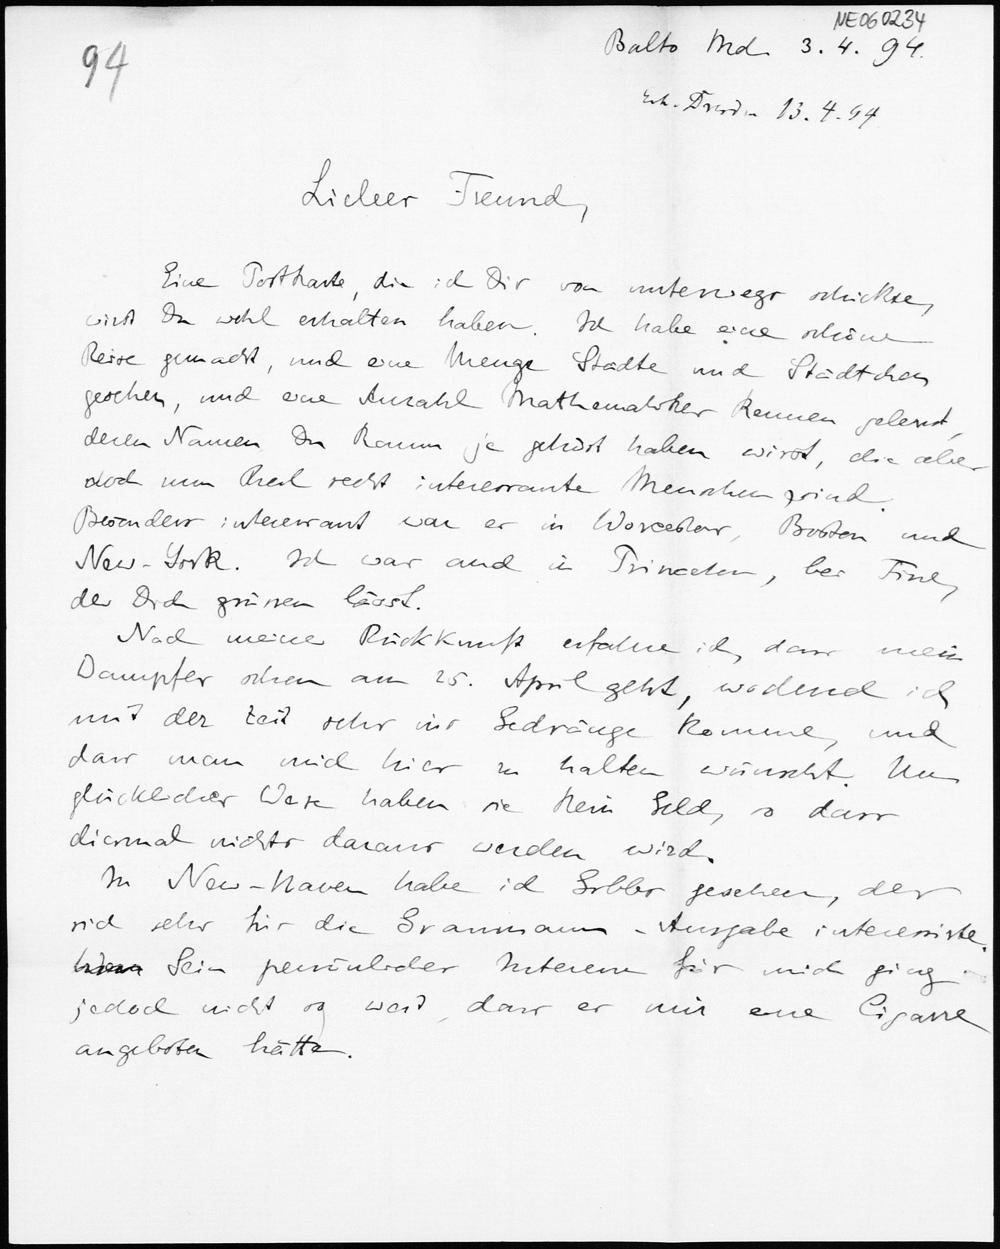 NE060234
94
Balto Md. 3. 4. 94.
Erh. Dresden 13. 4. 94
Lieber Freund,
Eine Postkarte, die ich Dir von unterwegs schickte,
wirst Du wohl erhalten haben. Ich habe eine schöne
Reise gemacht, und eine Menge Städte und Städtchen
gesehen, und eine Anzahl Mathematiker kennen gelernt,
deren Namen Du kaum je gehört haben wirst, die aber
doch zum Theil recht interessante Menschen sind.
Besonders interessant war es in Worcester, Boston und
New-York. Ich war auch in Princeton, bei Fine,
der Dich grüssen lässt.
Nach meiner Rückkunft erfahre ich, dass mein
Dampfer schon am 25. April geht, wodurch ich
mit der Zeit sehr ins Gedränge komme, und
dass man mich hier zu halten wünscht. Un
glücklicher Weise haben sie kein Geld, so dass
diesmal nichts daraus werden wird.
In New-Haven habe ich Gibbs gesehen, der
sich sehr für die Grassmann-Ausgabe interessirte.
Sein persönliches Interesse für mich ging
jedoch nicht so weit, dass er mir eine Cigarre
angeboten hätte.